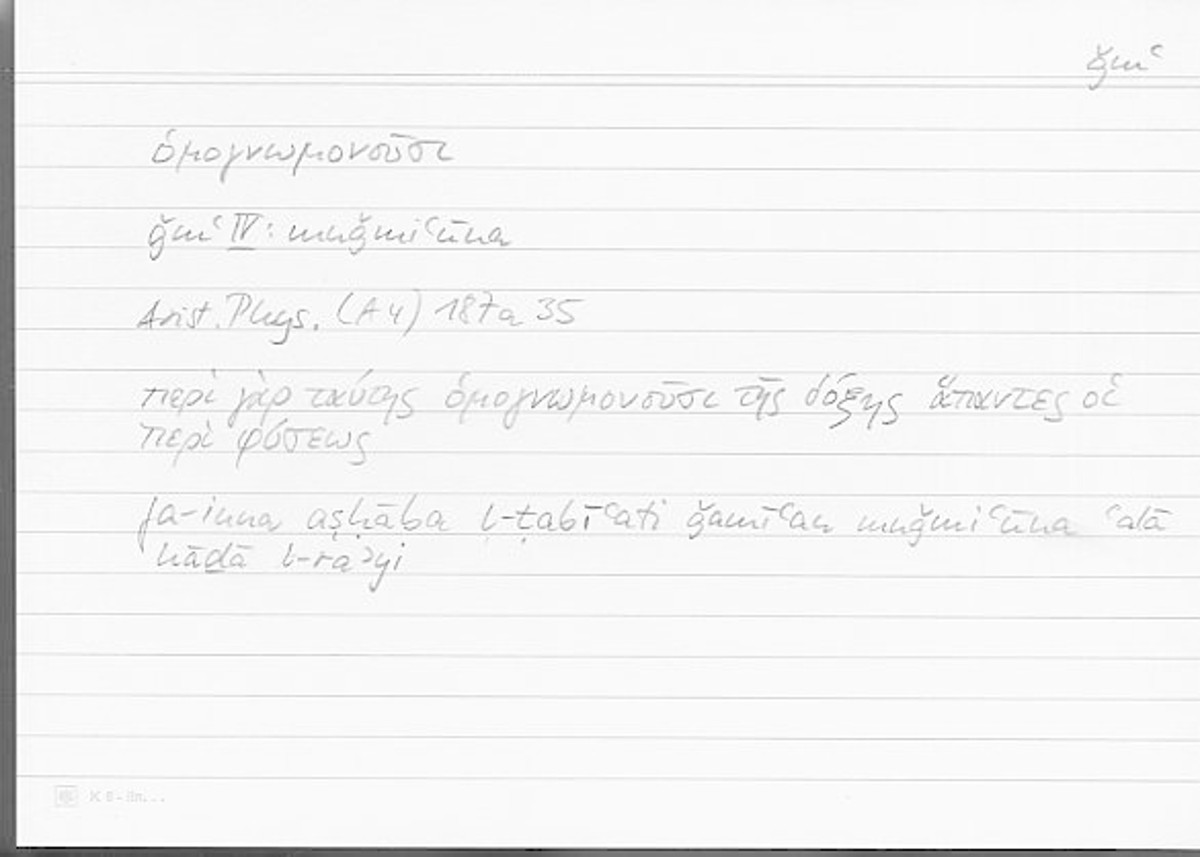 ǧmʿ
ὁμογνωμονοῦσι
ǧmʿ IV: muǧmiʿūna
Arist. Phys. (A 4) 187a 35
περὶ γὰρ ταύτης ὁμογνωμονοῦσι τῆς δόξης ἅπαντες οἱ
περὶ φύσεως
fa-inna aṣḥāba l-ṭabīʿati ǧamīʿan muǧmiʿūna ʿalā
hāḏā l-raʾyi